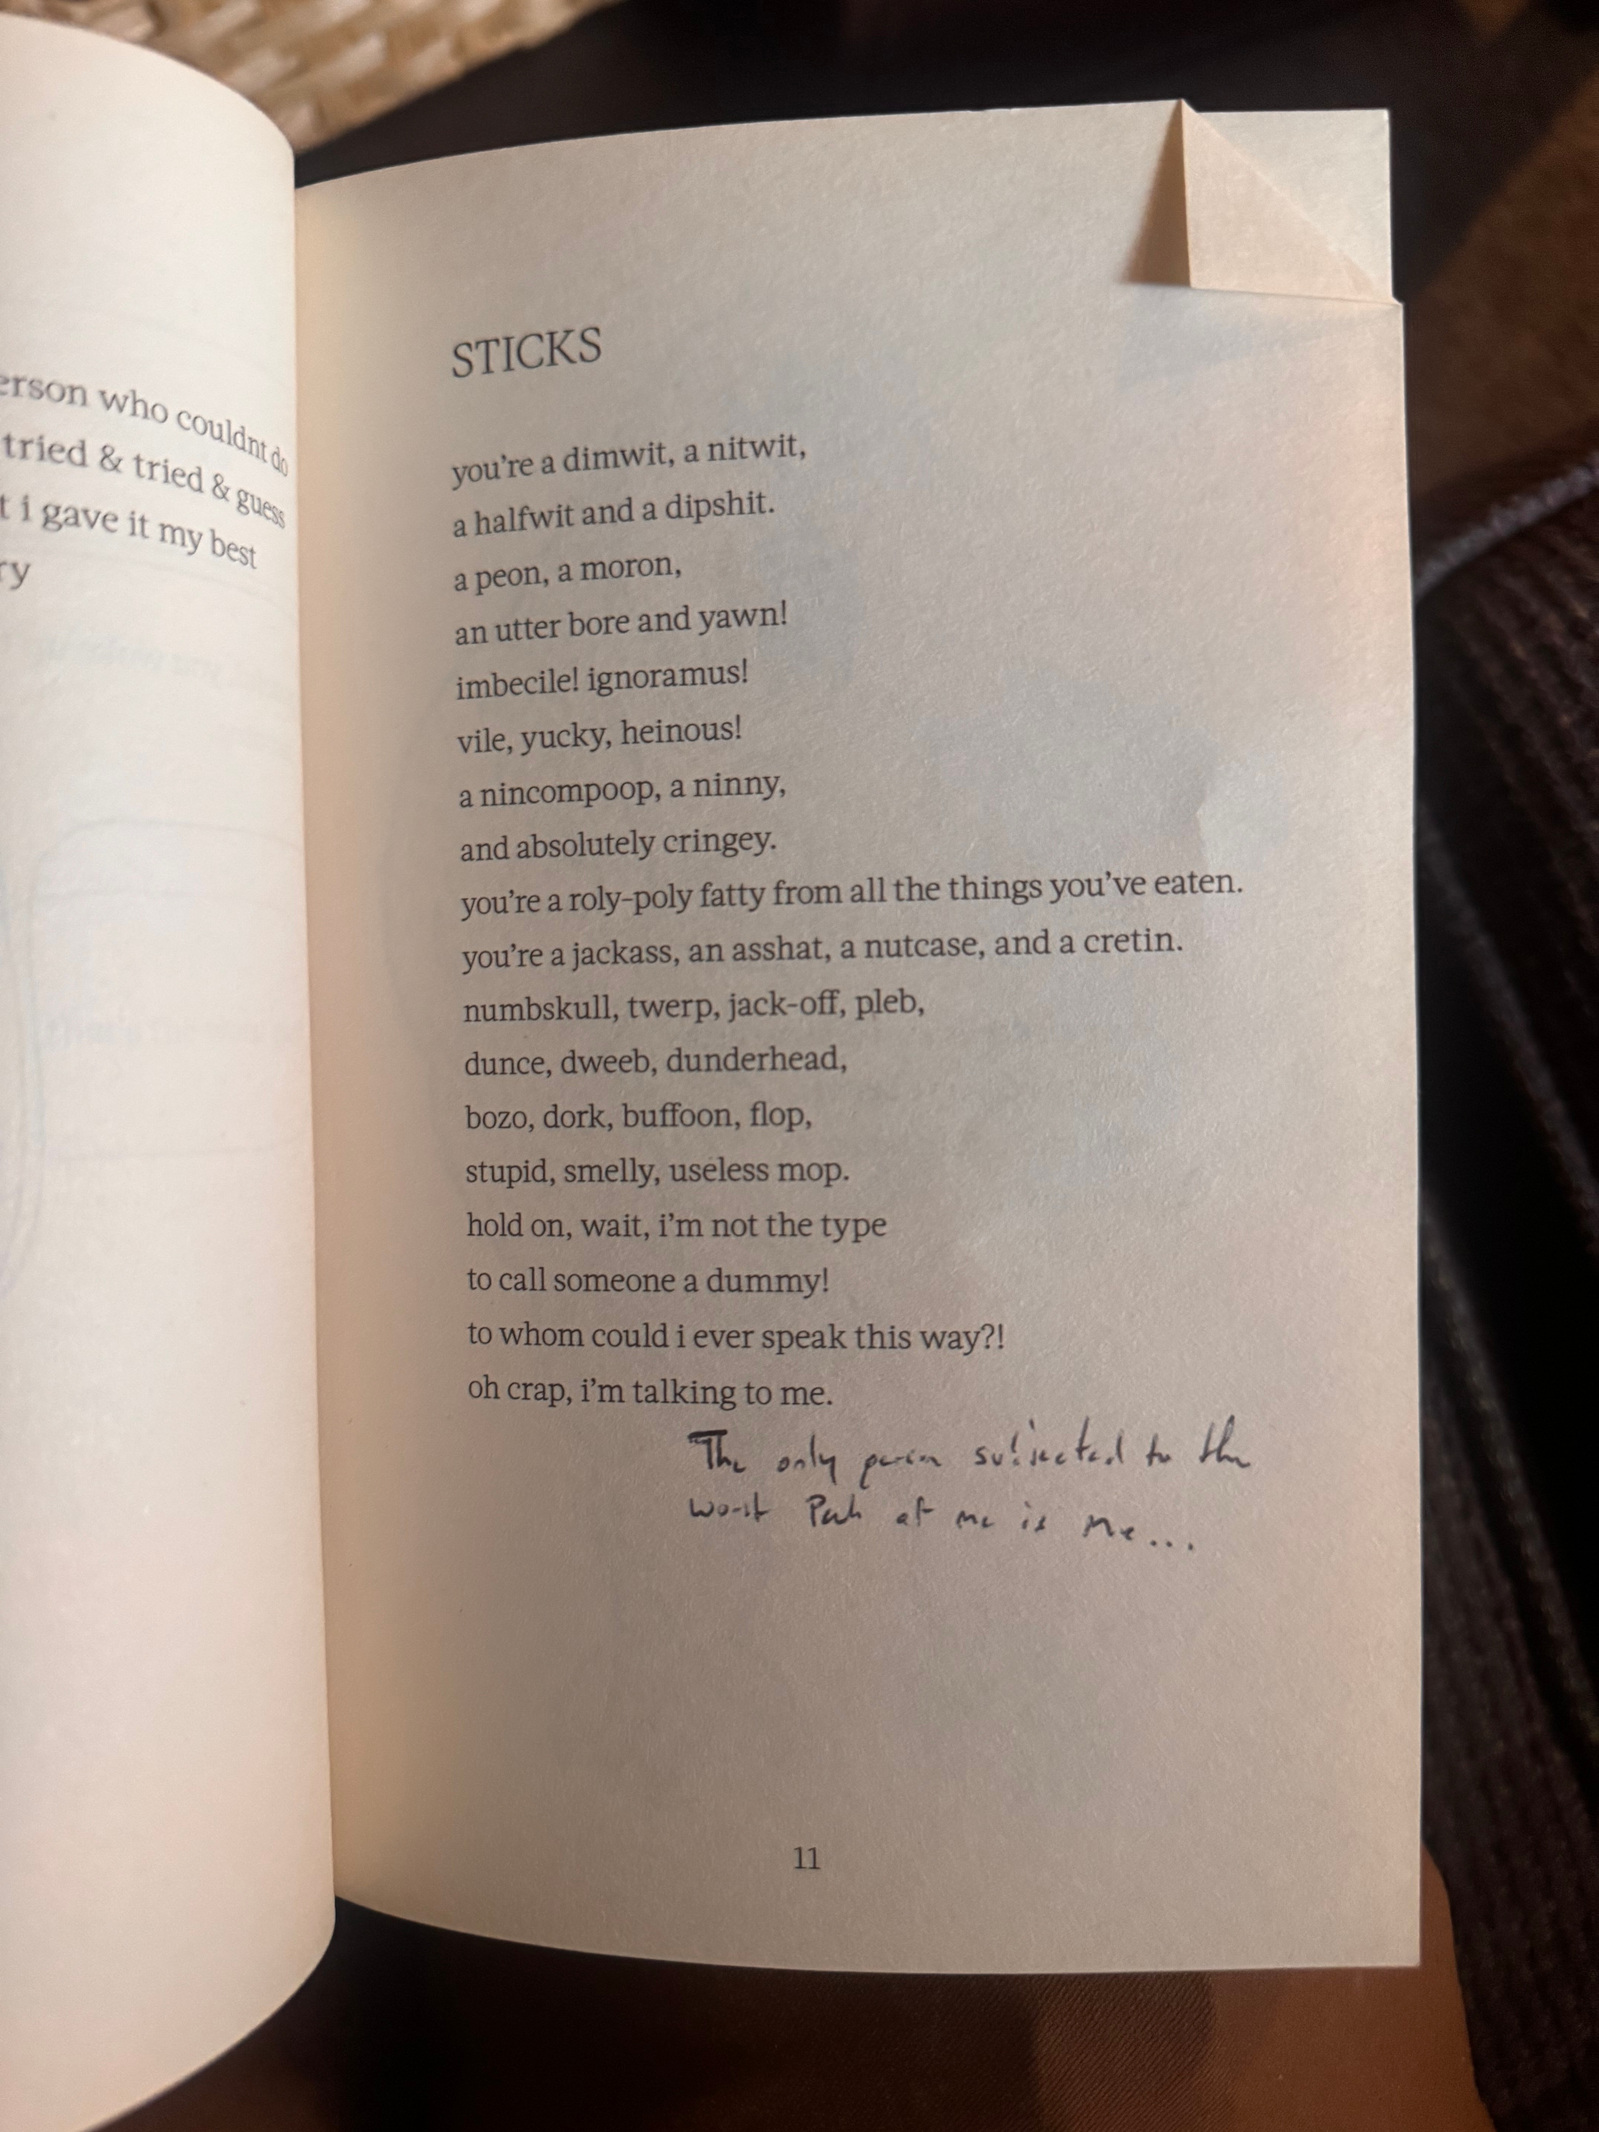 erson who couldnt do
tried & tried & guess
t i gave it my best
ry
STICKS
you're a dimwit, a nitwit,
a halfwit and a dipshit.
a peon, a moron,
an utter bore and yawn!
imbecile! ignoramus!
vile, yucky, heinous!
a nincompoop, a ninny,
and absolutely cringey.
you're a roly-poly fatty from all the things you've eaten.
you're a jackass, an asshat, a nutcase, and a cretin.
numbskull, twerp, jack-off, pleb,
dunce, dweeb, dunderhead,
bozo, dork, buffoon, flop,
stupid, smelly, useless mop.
hold on, wait, i'm not the type
to call someone a dummy!
to whom could i ever speak this way?!
oh crap, i'm talking to me.
The only person subjected to the
worst of me is me...
11